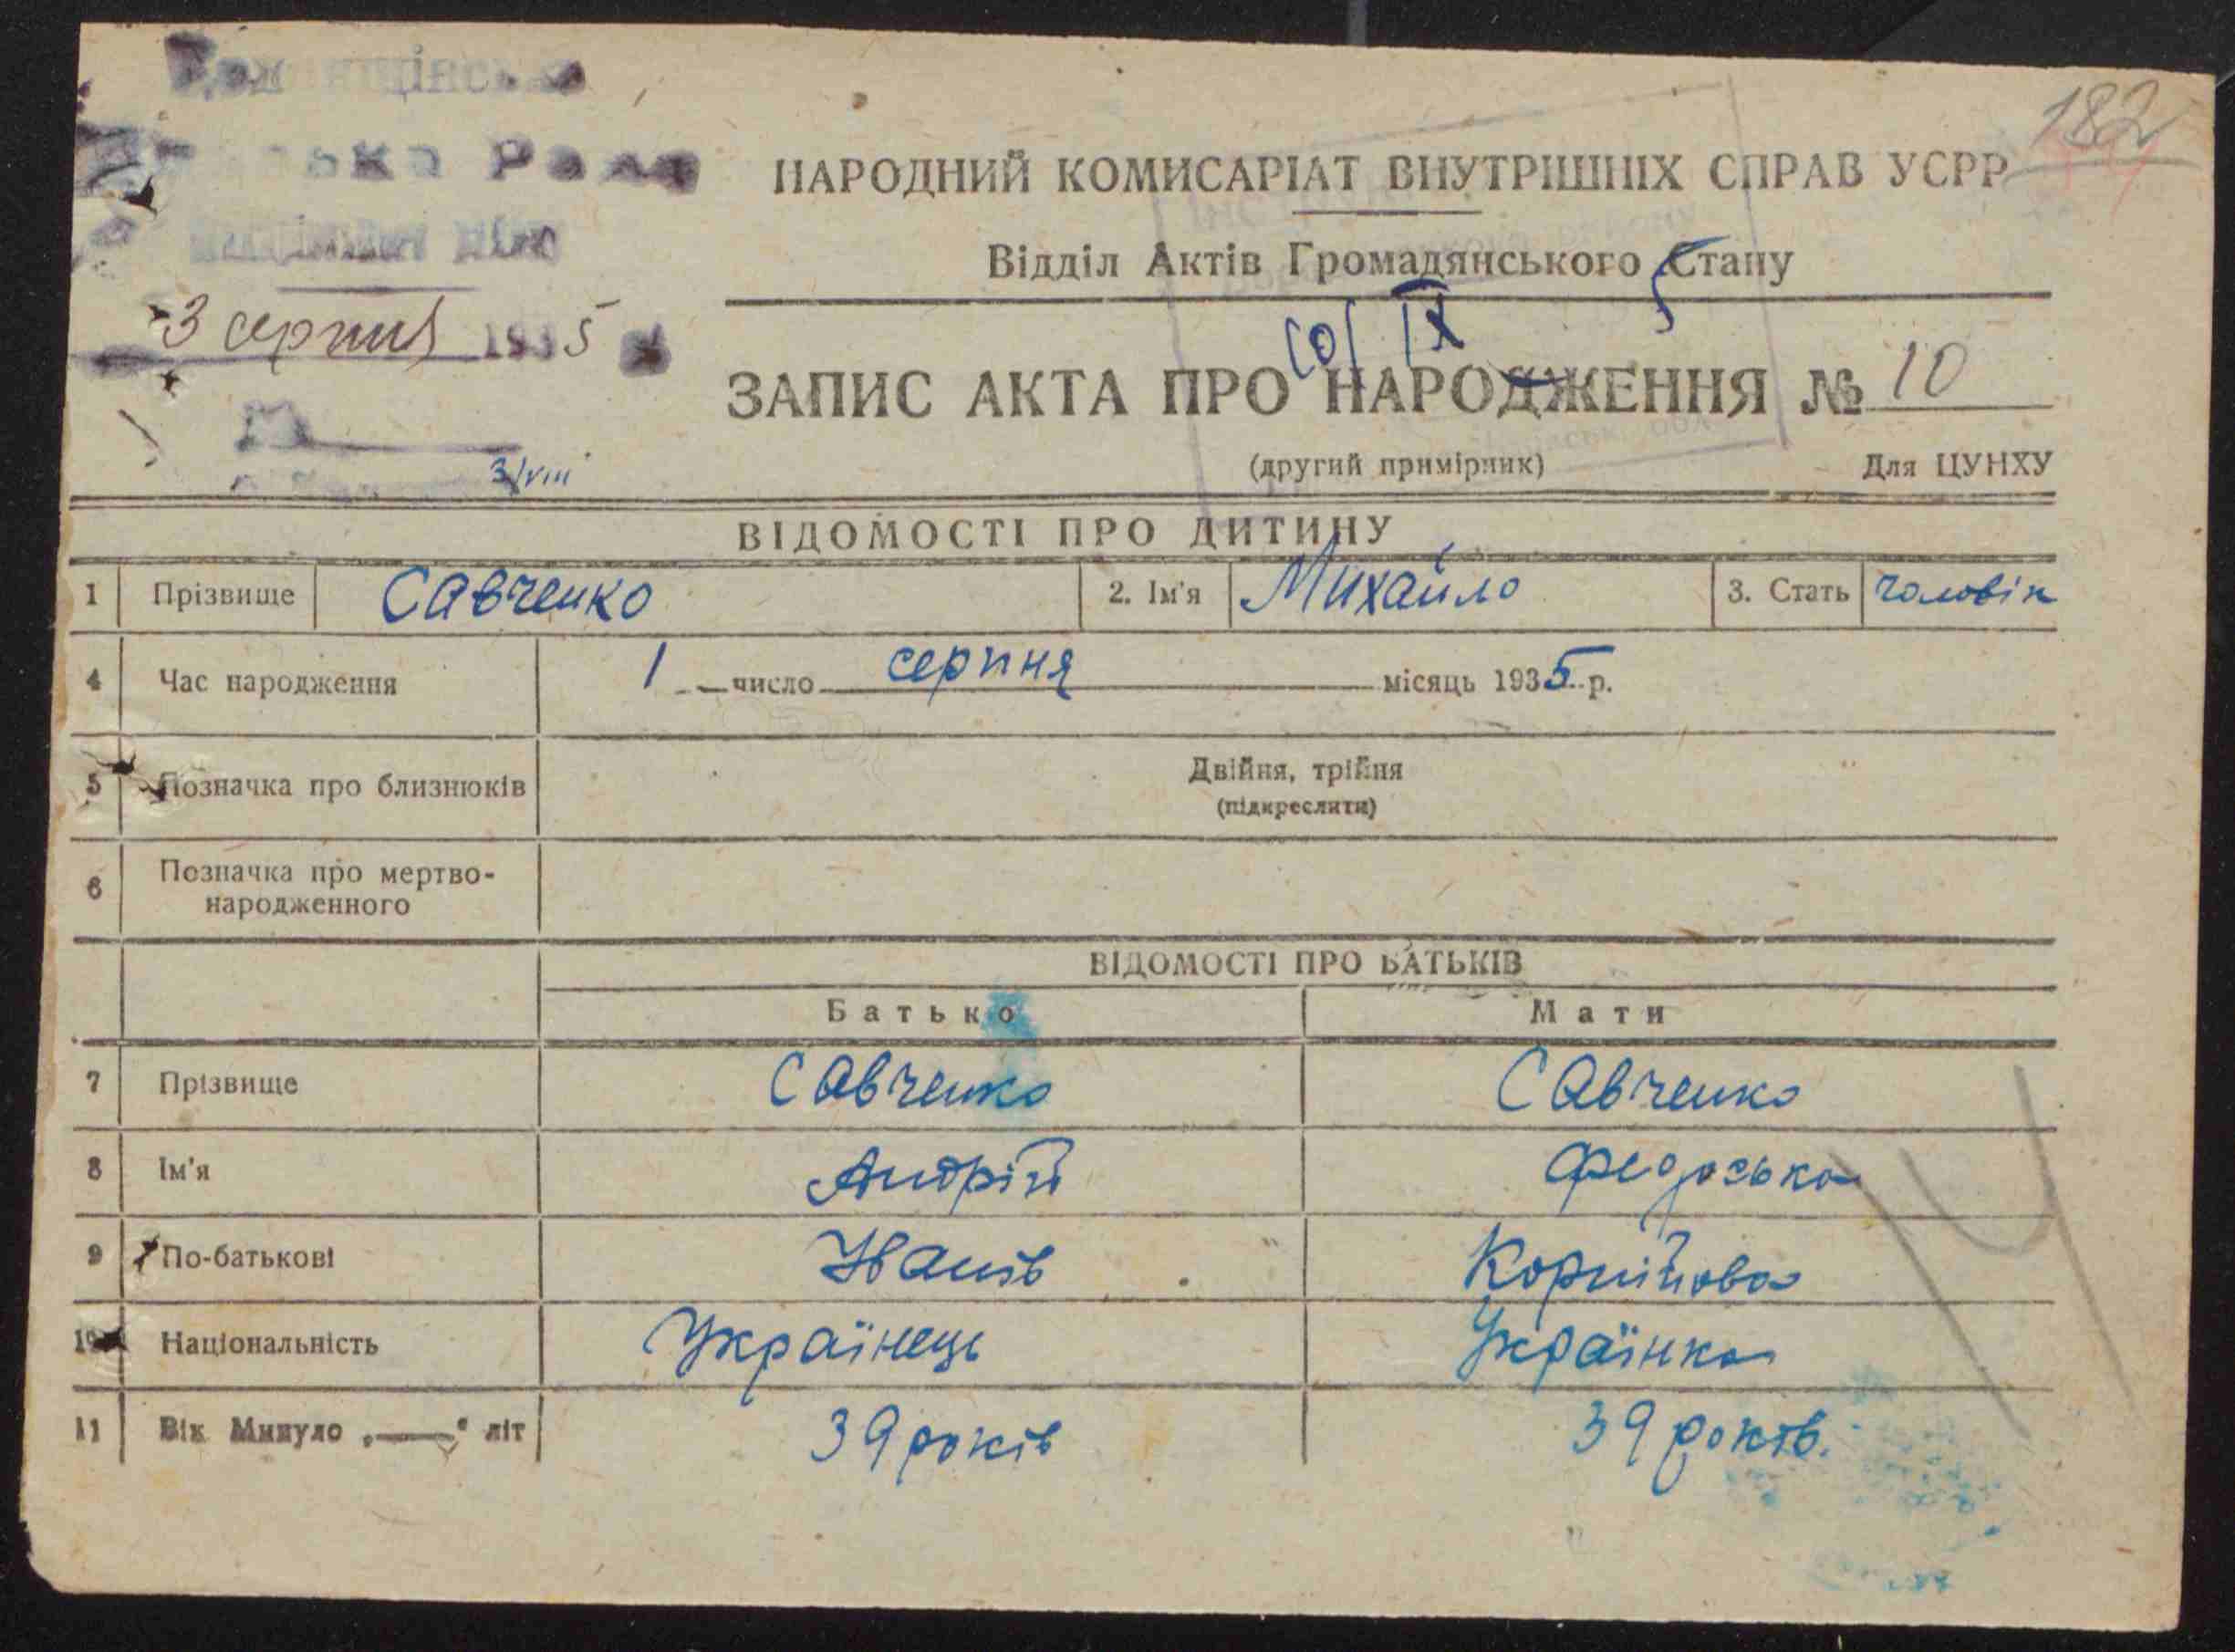 Рада
182
НАРОДНИЙ КОМИСАРІАТ ВНУТРІШНІХ СПРАВ УСРР
Відділ Актів Громадянського Стану
3 серпня 1935
10/IX
ЗАПИС АКТА ПРО НАРОДЖЕННЯ № 10
(другий примірник) Для ЦУНХУ
3/VIII
ВІДОМОСТІ ПРО ДИТИНУ
1 Прізвище Савченко 2. Ім'я Михайло 3. Стать чоловік
4 Час народження 1 число серпня місяць 1935 р.
5 Позначка про близнюків Двійня, трійня
(підкреслити)
6 Позначка про мертво-
народженного
ВІДОМОСТІ ПРО БАТЬКІВ
Батько Мати
7 Прізвище Савченко Савченко
8 Ім'я Андрій Федоська
9 По-батькові Іванів Корнійова
10 Національність Українець Українка
11 Вік Минуло „—" літ 39 років 39 років.